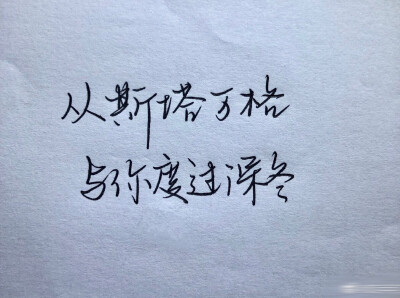 从斯塔万格
与你度过深冬